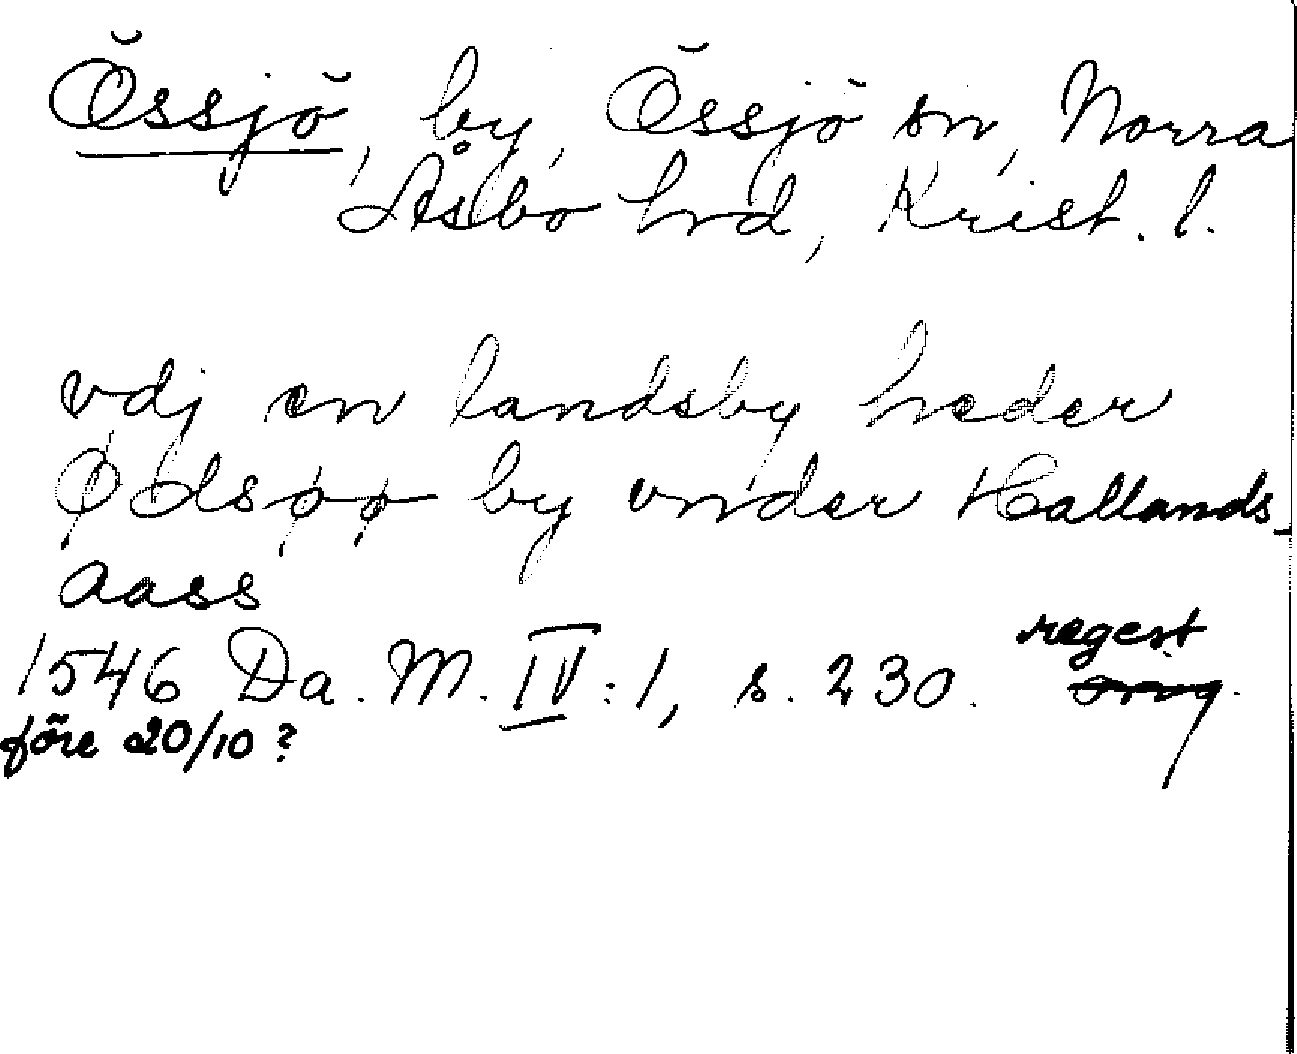 Össjö, by, Össjö sn, Norra
Åsbo hrd, Krist. l.
vdj en landsby heder
Ødsøø by vnder Hallands-
aass
1546 Da. M. IV:1, s. 230. regest
orig.
före 20/10?